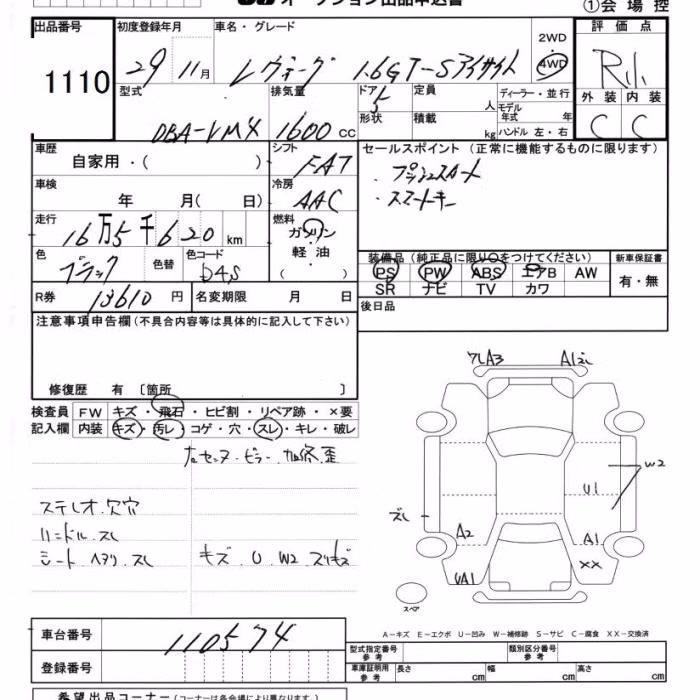 オークション出品申込書 ①会場控
出品番号 初度登録年月 車名・グレード 2WD 評価点
1110 29 11月 レヴォーグ 1.6GT-Sアイサイト 4WD R小
型式 排気量 ドア 定員 ディーラー・並行 外装 内装
DBA-VM4 1600 CC 5 人 モデル年式 年 C C
形状 積載 kg ハンドル 左・右
車歴 シフト セールスポイント(正常に機能するものに限ります)
自家用・( ) FAT ・プッシュスタート
車検 冷房 ・スマートキー
年 月( 日) AAC
走行 燃料
16万5千620km ガソリン
軽油
( )
色 色替 色コード 装備品(純正品に限り○をつけてください) 新車保証書
ブラック D4S PS PW ABS エアB AW 有・無
SR ナビ TV カワ
R券 13610円 名変期限 月 日 後日品
注意事項申告欄(不具合内容等は具体的に記入して下さい)
修復歴 有 〔箇所 〕
検査員 FW キズ・飛石・ヒビ割・リペア跡・×要
記入欄 内装 キズ・汚レ・コゲ・穴・スレ・キレ・破レ
右センターピラー 加修歪
ステレオ欠穴
ハンドル スレ
シート ヘタリ スレ キズ U W2 スリキズ
ワレA3 A1
W2
U1
ズレ
A2 A1
XX
UA1
スペア
A-キズ E-エクボ U-凹み W-補修跡 S-サビ C-腐食 XX-交換済
車台番号 110574
型式指定番号 参考 類別区分番号 参考
登録番号 車庫証明用 参考 長さ cm 幅 cm 高さ cm
希望出品コーナー(コーナーは各会場により異なります。)